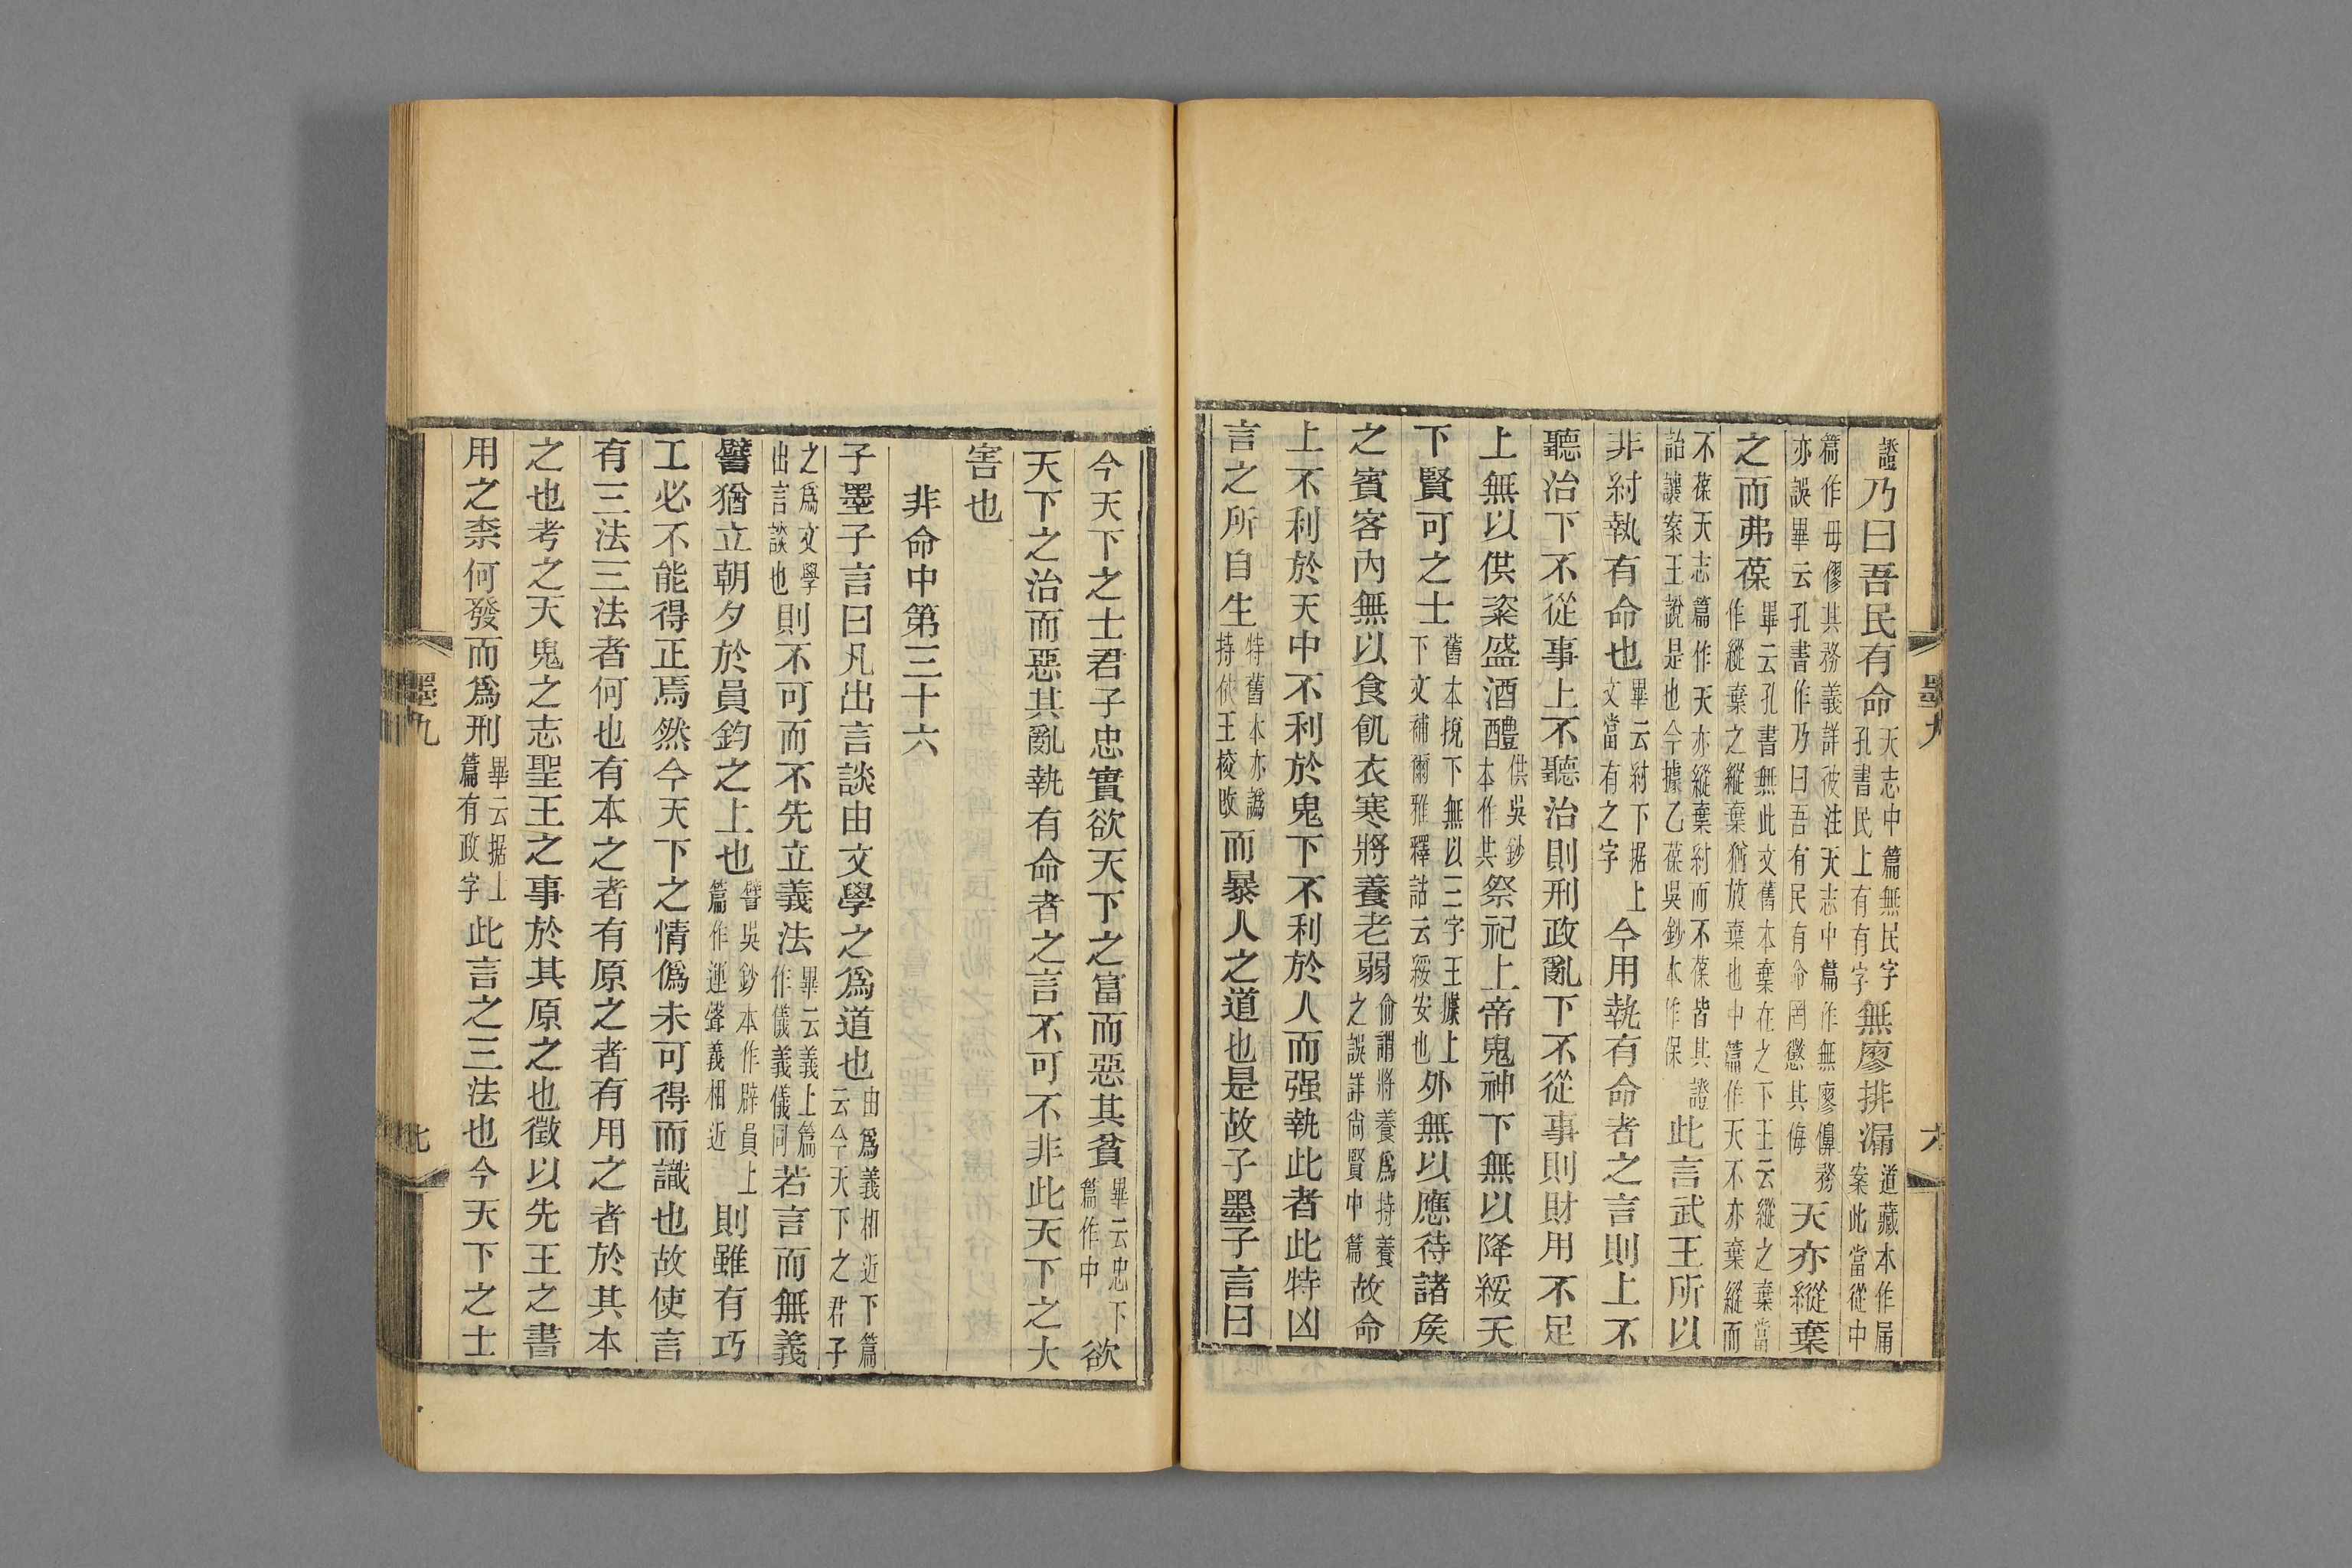 證乃曰吾民有命天志中篇無民字孔書民上有有字無廖排漏道藏本作屚案此當從中
篇作毋僇其務義詳彼注天志中篇作無廖僔務亦誤畢云孔書作乃曰吾有民有命罔懲其侮天亦縱棄
之而弗葆畢云孔書無此文舊本棄在之下王云縱之棄當作縱棄之縱棄猶放棄也中篇作天不亦棄縱而
不葆天志篇作天亦縱棄紂而不葆皆其證詒讓案王說是也今據乙葆吳鈔本作保此言武王所以
非紂執有命也畢云紂下据上文當有之字今用執有命者之言則上不
聽治下不從事上不聽治則刑政亂下不從事則財用不足
上無以供粢盛酒醴供吳鈔本作共祭祀上帝鬼神下無以降綏天
下賢可之士舊本挩下無以三字王據上下文補爾雅釋詁云綏安也外無以應待諸矦
之賓客內無以食飢衣寒將養老弱俞謂將養爲持養之誤詳尙賢中篇故命
上不利於天中不利於鬼下不利於人而强執此者此特凶
言之所自生特舊本亦譌持依王校改而暴人之道也是故子墨子言曰
今天下之士君子忠實欲天下之富而惡其貧畢云忠下篇作中欲
天下之治而惡其亂執有命者之言不可不非此天下之大
害也
非命中第三十六
子墨子言曰凡出言談由文學之爲道也由爲義相近下篇云今天下之君子
之爲文學出言談也則不可而不先立義法畢云義上篇作儀義儀同若言而無義
譬猶立朝夕於員鈞之上也譬吳鈔本作辟員上篇作運聲義相近則雖有巧
工必不能得正焉然今天下之情僞未可得而識也故使言
有三法三法者何也有本之者有原之者有用之者於其本
之也考之天鬼之志聖王之事於其原之也徵以先王之書
用之柰何發而爲刑畢云据上篇有政字此言之三法也今天下之士
墨九
六
墨九
七